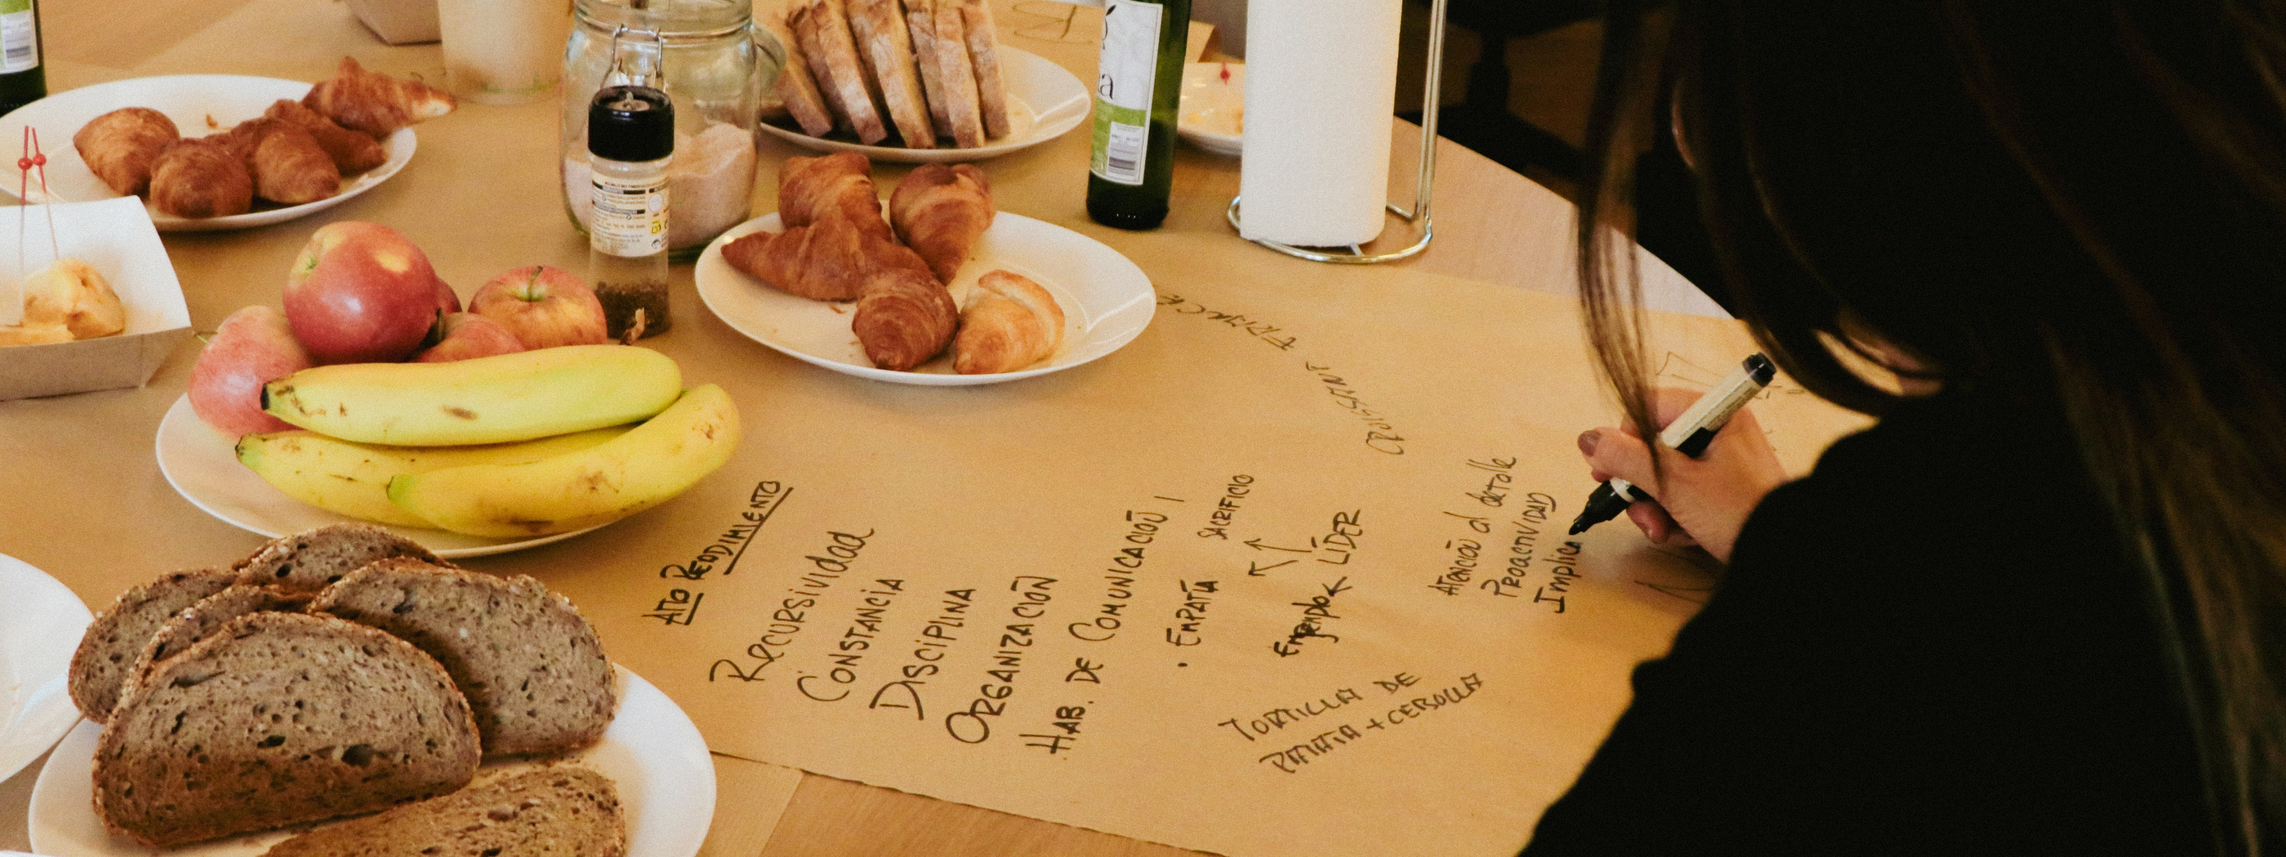 ALTO RENDIMIENTO
RECURSIVIDAD
CONSTANCIA
DISCIPLINA
ORGANIZACIÓN
HAB. DE COMUNICACIÓN
· EMPATÍA
SACRIFICIO
LÍDER
TORTILLA DE
PATATA + CEBOLLA
Atención al detalle
PROACTIVIDAD
Implica